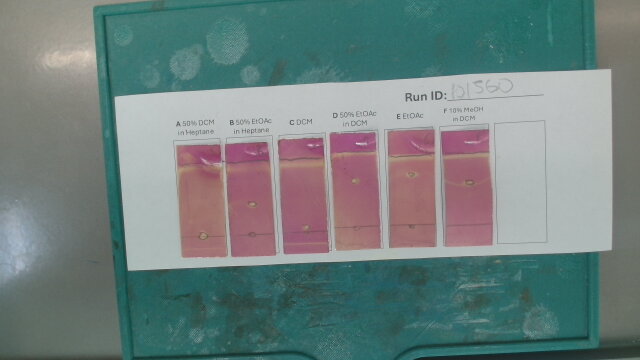 Run ID: 101560
A 50% DCM
in Heptane
B 50% EtOAc
in Heptane
C DCM
D 50% EtOAc
in DCM
E EtOAc
F 10% MeOH
in DCM